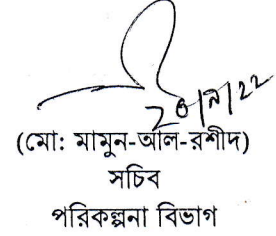 (মো: মামুন-আল-রশীদ)
সচিব
পরিকল্পনা বিভাগ